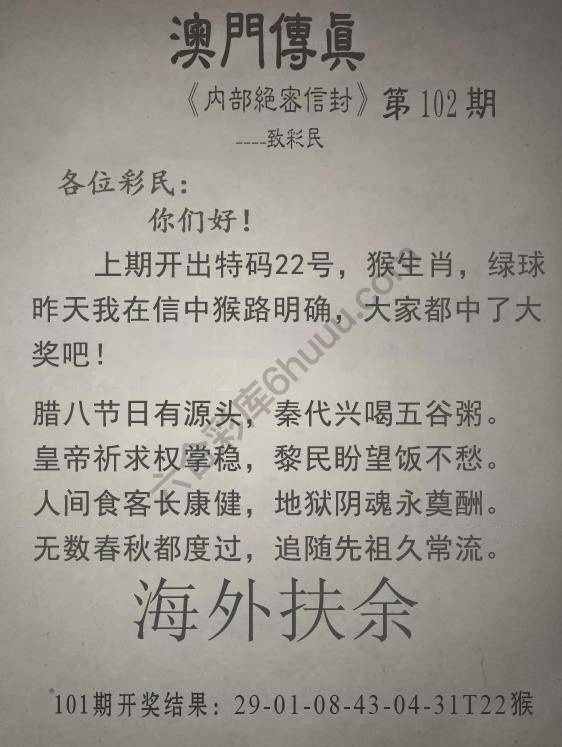 澳門傳眞
《内部絕密信封》第102期
----致彩民
各位彩民：
你们好！
上期开出特码22号，猴生肖，绿球
昨天我在信中猴路明确，大家都中了大
奖吧！
腊八节日有源头，秦代兴喝五谷粥。
皇帝祈求权掌稳，黎民盼望饭不愁。
人间食客长康健，地狱阴魂永奠酬。
无数春秋都度过，追随先祖久常流。
海外扶余
101期开奖结果：29-01-08-43-04-31T22猴
六合彩库6huuu.com